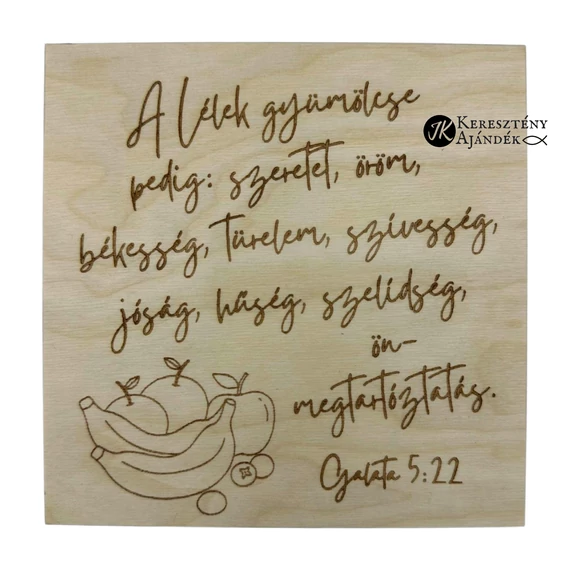 A lélek gyümölcse
pedig: szeretet, öröm,
békesség, türelem, szívesség,
jóság, hűség, szelídség,
ön-
megtartóztatás.
Galata 5:22
JK
KERESZTÉNY
AJÁNDÉK